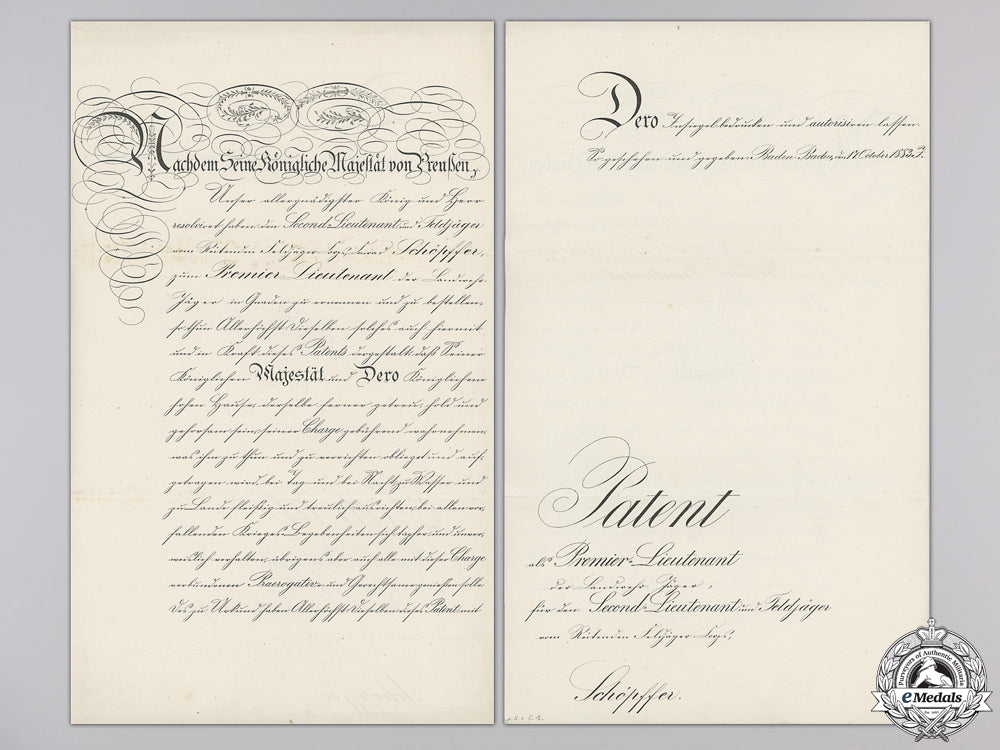 Nachdem Seine Königliche Majestät von Preußen,
Unser allergnädigster König und Herr
resolviret haben, den Second-Lieutenant und Feldjäger
vom Reitenden Feldjäger Corps Schöpffer,
zum Premier-Lieutenant der Landwehr-
Jäger in Gnaden zu ernennen und zu bestellen,
so thun Allerhöchst Dieselben solches auch hiermit
und in Kraft dieses Patents dergestalt, daß Seiner
Königlichen Majestät und Dero Königlichem
Hohen Hause, derselbe ferner getreu, hold und
gehorsam sein, seiner Charge gebührend wahrnehmen,
was ihm zu thun und zu verrichten obliegt und auf-
getragen wird, bei Tag und bei Nacht, zu Wasser und
zu Lande fleißig und treulich ausrichten, bei allen vor-
fallenden Krieges-Begebenheiten sich tapfer und unver-
weislich verhalten, übrigens aber auch alle mit dieser Charge
verbundenen Praerogative und Gerechtsame genießen solle.
Des zu Urkund haben Allerhöchst Dieselben dieses Patent mit
Dero Insiegel bedrucken und autorisiren lassen.
So geschehen und gegeben Baden-Baden, den 17 October
Patent
als Premier-Lieutenant
der Landwehr-Jäger,
für den Second-Lieutenant und Feldjäger
vom Reitenden Feldjäger Corps,
Schöpffer.
Purveyors of Authentic Militaria
eMedals